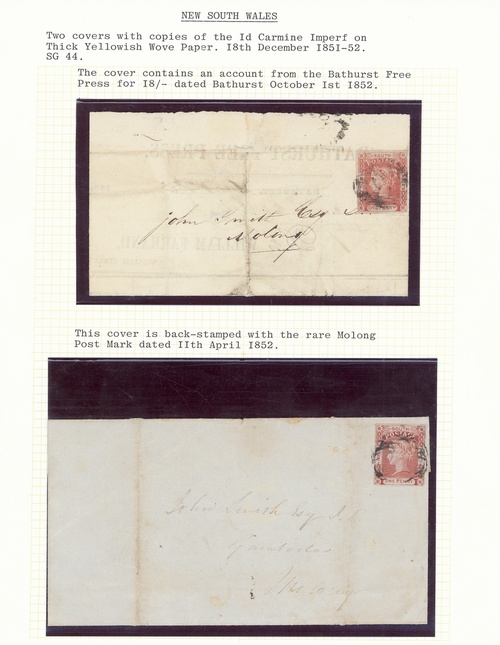 NEW SOUTH WALES
Two covers with copies of the Id Carmine Imperf on
Thick Yellowish Wove Paper. I8th December I85I-52.
SG 44.
The cover contains an account from the Bathurst Free
Press for I8/- dated Bathurst October Ist I852.
John Smith Esq
Molong
This cover is back-stamped with the rare Molong
Post Mark dated IIth April I852.
SOUTH
POSTAGE
ONE PENNY
John Smith Esq J.P.
Gamboola
Molong